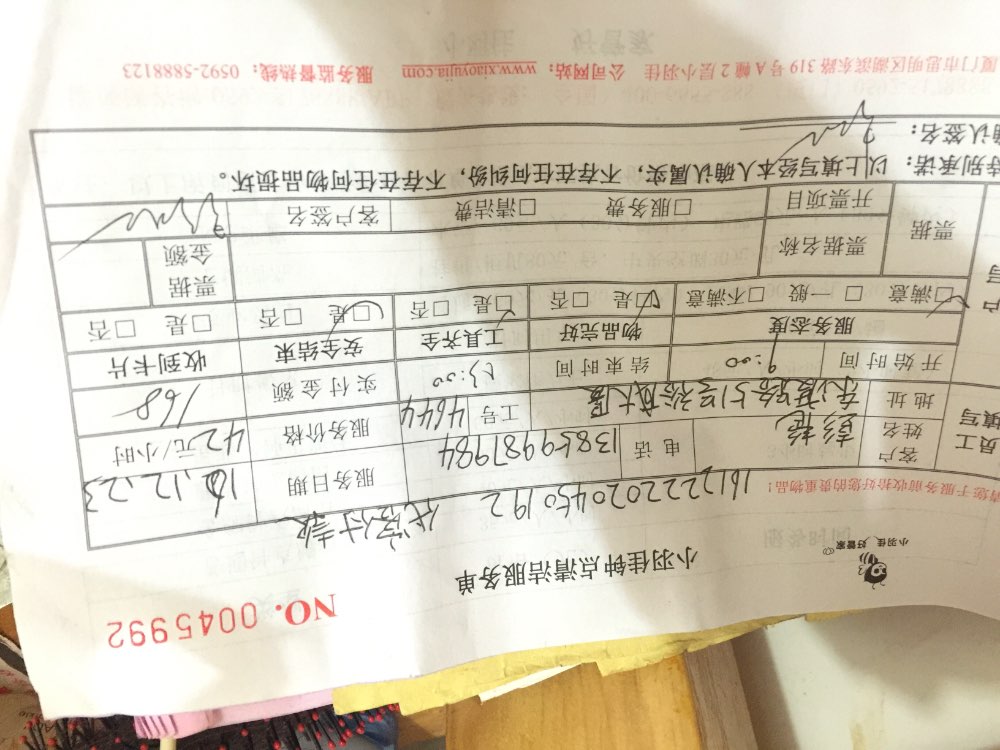 NO. 0045992
小羽佳 好管家
小羽佳钟点清洁服务单
请您于服务前收拾好您的贵重物品!
1612222020450192 代客付款
员工填写
客户姓名 彭艳 电话 13859987984 服务日期 16.12.23
地址 工号 4644 服务价格 42元/小时
开始时间 9:00 结束时间 13:00 实付金额 168
服务态度 物品完好 工具齐全 安全结束 收到卡片
☑满意 □一般 □不满意 ☑是 □否 ☑是 □否 ☑是 □否 □是 □否
票据 票据名称 票据金额
开票项目 □服务费 □清洁费 客户签名
特别承诺:以上填写经本人确认属实,不存在任何纠纷,不存在任何物品损坏。
确认签名:
厦门市思明区湖滨东路 319 号 A 幢 2 层小羽佳 公司网站:www.xiaoyujia.com 服务监督热线:0592-5888123